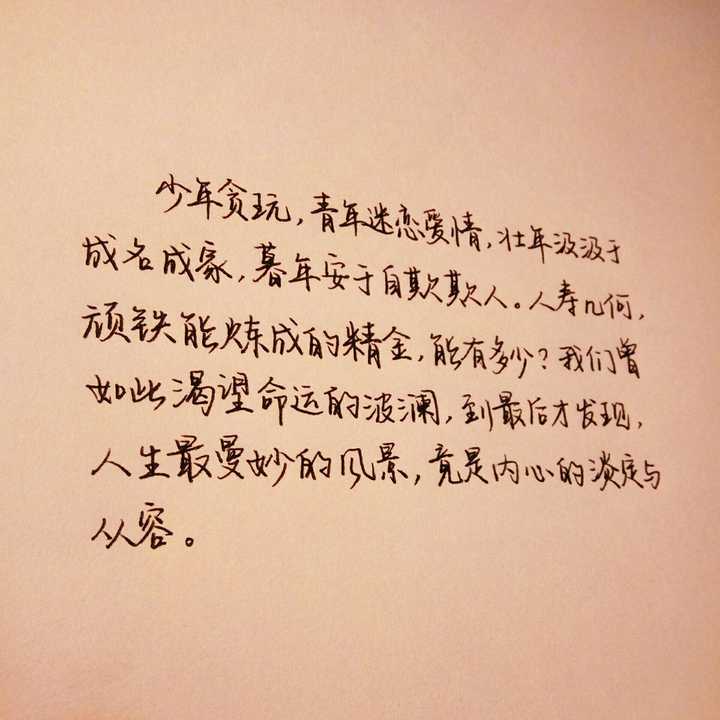 少年贪玩，青年迷恋爱情，壮年汲汲于
成名成家，暮年安于自欺欺人。人寿几何，
顽铁能炼成的精金，能有多少？我们曾
如此渴望命运的波澜，到最后才发现，
人生最曼妙的风景，竟是内心的淡定与
从容。